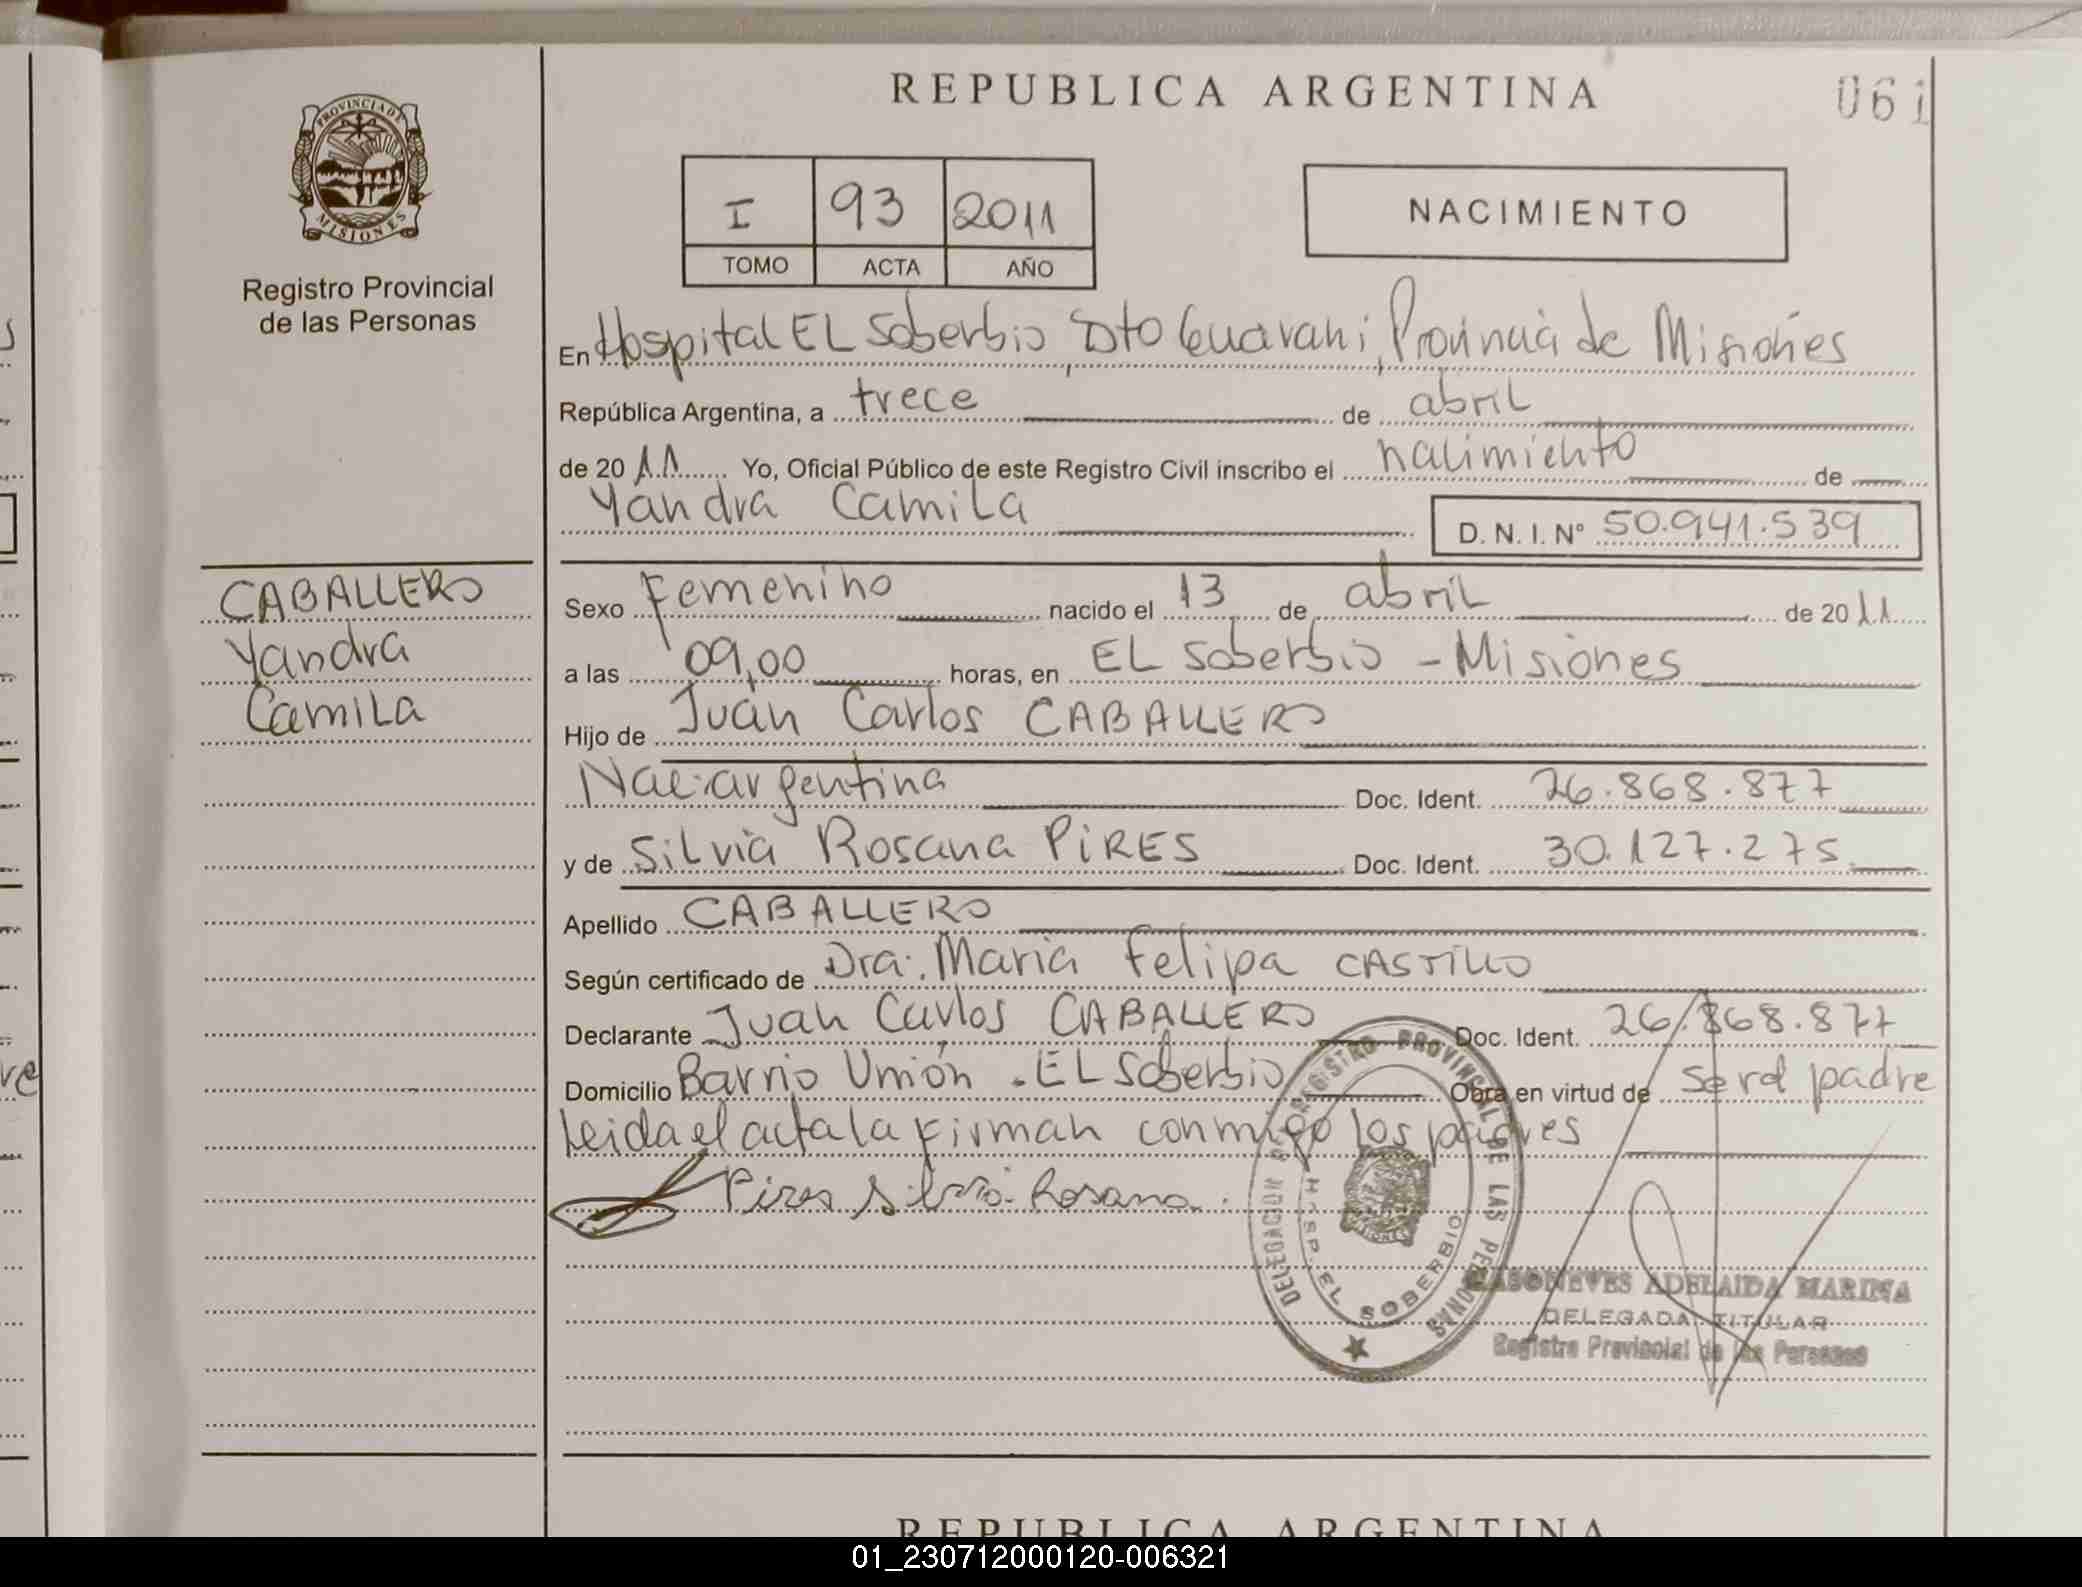 REPUBLICA ARGENTINA
061
PROVINCIA DE
MISIONES
Registro Provincial
de las Personas
I 93 2011
TOMO ACTA AÑO
NACIMIENTO
En Hospital EL Soberbio, Dto Guarani, Provincia de Misiones
República Argentina, a trece de abril
de 2011 Yo, Oficial Público de este Registro Civil inscribo el nacimiento de
Yandra Camila
D. N. I. Nº 50.941.539
CABALLERO
Yandra
Camila
Sexo Femenino nacido el 13 de abril de 2011
a las 09,00 horas, en EL Soberbio - Misiones
Hijo de Juan Carlos CABALLERO
Nac: argentina Doc. Ident. 26.868.877
y de Silvia Rosana PIRES Doc. Ident. 30.127.275
Apellido CABALLERO
Según certificado de Dra. Maria Felipa CASTILLO
Declarante Juan Carlos CABALLERO Doc. Ident. 26.868.877
Domicilio Barrio Unión. EL Soberbio Obra en virtud de ser el padre
Leida el acta la firman conmigo los padres
Pires Silvia Rosana.
DELEGACION REGISTRO PROVINCIAL DE LAS PERSONAS
HOSP. EL SOBERBIO
ADELAIDA MARINA
DELEGADA TITULAR
Registro Provincial de las Personas
REPUBLICA ARGENTINA
01_230712000120-006321